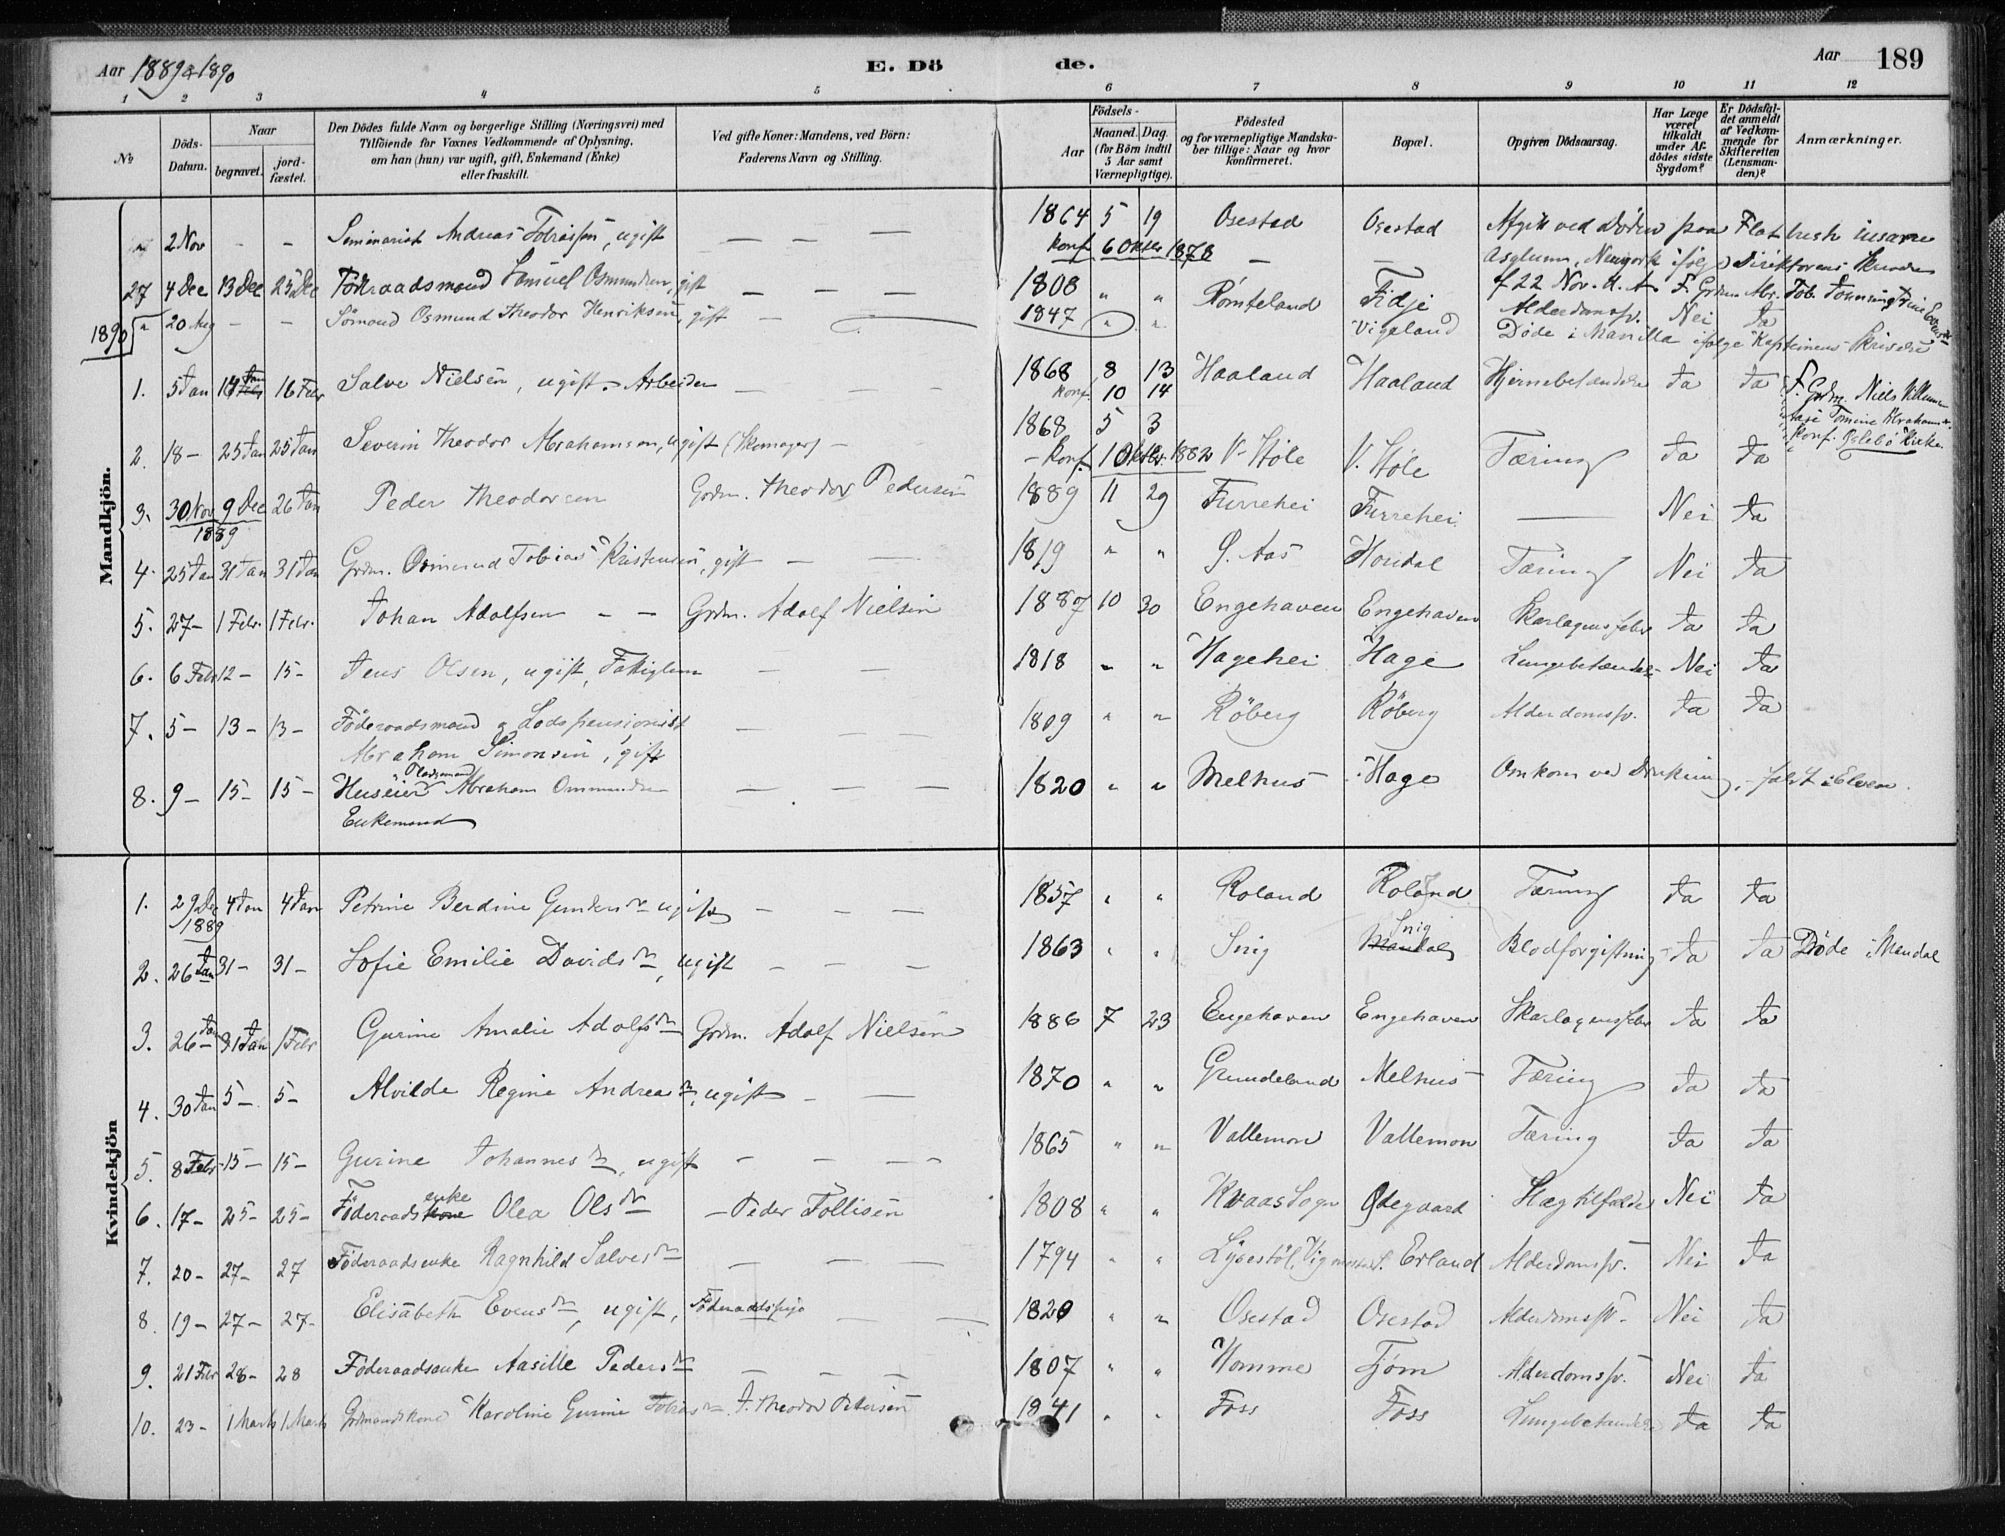 Aar 1889 & 1890
E. Dö de.
Aar 189
1 2 3 4 5 6 7 8 9 10 11 12
No
Döds-Datum.
Naar
begravet.
jord-fæstet.
Den Dödes fulde Navn og borgerlige Stilling (Næringsvei) med
Tilföiende for Voxnes Vedkommende af Oplysning,
om han (hun) var ugift, gift, Enkemand (Enke)
eller fraskilt.
Ved gifte Koner: Mandens, ved Börn:
Faderens Navn og Stilling.
Födsels-
Aar
Maaned. Dag.
(for Börn indtil
5 Aar samt
Værnepligtige).
Födested
og for værnepligtige Mandska-
ber tillige: Naar og hvor
konfirmeret.
Bopæl.
Opgiven Dödsaarsag.
Har Læge
været
tilkaldt
under Af-
dödes sidste
Sygdom?
Er Dödsfal-
det anmeldt
af Vedkom-
mende for
Skifteretten
(Lensman-
den)?
Anmærkninger.
Mandkjön.
" 2 Nov - - Seminarist Andreas Tobiassen, ugift — — — 1864 5 19 Osestad Osestad Afgik ved Döden paa Flatbush insane
konf. 6 Oktbr 1878 — — Asylum, Newyork ifölge Direktörens Skrivelse
27 4 Dec 13 Dec 25 Dec Föderaadsmand Samuel Osmundsen, gift — — — 1808 " " Römteland Fidje Alderdomssv. Nei Ja
af 22 Nov. d. A.
1890 " 20 Aug - - Sömand Osmund Theodor Henriksen, gift — 1847 " " Vigeland Döde i Manilla ifölge Kapteinens Skrivelse
1. 5 Jan 14 Jan 16 Febr Salve Nielsen, ugift. Arbeider — — 1868 8 13 Haaland Haaland Hjernebetændelse Ja Ja F. Grdm. Niels
konf. 10 14
Konf. Oslebö Kirke
2. 18 — 25 Jan 25 Jan Severin Theodor Abrahamsen, ugift (Skomager) — 1868 5 3
— Konf. 1 Oktbr. 1882 V. Stöle V. Stöle Tæring Ja Ja
3. 30 Nov 9 Dec 26 Jan Peder Theodorsen Grdm. Theodor Pedersen 1889 11 29 Furrehei Furrehei — Nei Ja
1889
4. 25 Jan 31 Jan 31 Jan Grdm. Osmund Tobias Kristensen, gift — — 1819 " " S. Aas Houdal Tæring Nei Ja
5. 27 — 1 Febr. 1 Febr. Johan Adolfsen — — Grdm. Adolf Nielsen 1887 10 30 Engehaven Engehaven Skarlagensfeber Ja Ja
6. 6 Febr 12 — 15 — Jens Olsen, ugift, Fattiglem — — 1818 " " Hagehei Hage Lungebetændelse Nei Ja
7. 5 — 13 — 13 — Föderaadsmand og Lodspensionist — — 1809 " " Röberg Röberg Alderdomssv. Ja Ja
Abraham Simonsen, gift
8. 9 — 15 — 15 — Huseier Pladsmand Abraham Ommundsen — — — 1820 " " Melhus Hage Omkom ved Drukning, faldt i Elven.
Enkemand
Kvindekjön
1. 29 Dec 4 Jan 4 Jan Petrine Berdine Gundersdtr ugift — — — 1857 " " Roland Roland Tæring Ja Ja
1889
2. 26 Jan 31 — 31 — Sofie Emilie Davidsdtr, ugift — — — 1863 " " Snig Snig Mandal Blodforgiftning Ja Ja Döde i Mandal
3. 26 — Jan 31 Jan 1 Febr Gurine Amalie Adolfsdtr Grdm. Adolf Nielsen 1886 7 23 Engehaven Engehaven Skarlagensfeber Ja Ja
4. 30 Jan 5 — 5 — Alvilde Regine Andreasdtr, ugift — — 1870 " " Grundeland Melhus Tæring Ja Ja
5. 8 Febr 15 — 15 — Gurine Johannesdtr, ugift — — — 1865 " " Vallemon Vallemon Tæring Ja Ja
6. 17 — 25 — 25 — Föderaadsenke kone Olea Olsdtr — Peder Tollisen 1808 " " Kvaas Sogn Ödegaard Slagtilfælde Nei Ja
7. 20 — 27 — 27 Föderaadsenke Ragnhild Salvesdtr — — — 1794 " " Lysestöl, Vigmostad S. Erland Alderdomssv. Nei Ja
8. 19 — 27 — 27 — Elisabeth Evensdtr, ugift, Föderaadspige — — 1820 " " Osestad Osestad Alderdomssv. Nei Ja
9. 21 Febr 28 — 28 Föderaadsenke Aasille Pedersdtr — — — 1807 " " Homme Tjöm Alderdomssv. Nei Ja
10. 23 — 1 Marts 1 Marts Grdmandskone Karoline Gurine Tobiasdtr J. Theodor Petersen 1841 " " Foss Foss Lungebetændelse Ja Ja